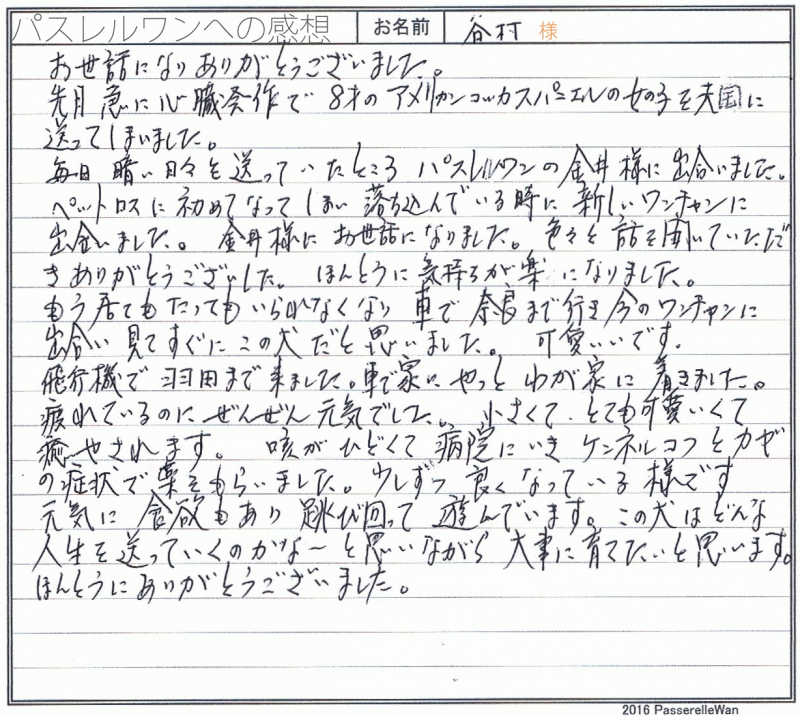 パスレルワンへの感想 お名前 谷村 様
お世話になりありがとうございました。
先月 急に心臓発作で 8才の アメリカンコッカスパニエルの女の子を天国に
送ってしまいました。
毎日 暗い日々を送っていたところ パスレルワンの金井様に出合いました。
ペットロスに初めてなってしまい 落ち込んでいる時に 新しいワンチャンに
出会いました。 金井様に お世話になりました。色々と話を聞いていただ
きありがとうございした。 ほんとうに気持ちが楽になりました。
もう居てもたってもいられなくなり 車で 奈良まで行き今のワンチャンに
出会い 見てすぐにこの犬だと思いました。 可愛いいです。
飛行機で 羽田まで来ました。車で家に やっと わが家に着きました。
疲れているのに ぜんぜん元気でした。 小さくて、とても可愛いくて
癒やされます。 咳がひどくて 病院にいき ケンネルコフとカゼ
の症状で薬をもらいました。少しずつ 良くなっている様です
元気に 食欲もあり 跳び回って 遊んでいます。この犬はどんな
人生を送っていくのかな～と思いながら 大事に育てたいと思います。
ほんとうにありがとうございました。
2016 PasserelleWan